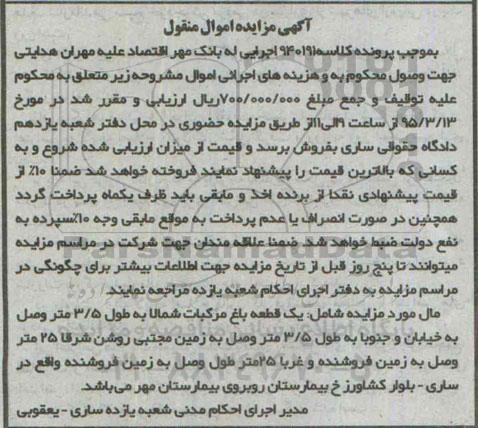 آگهی مزایده اموال منقول
بموجب پرونده کلاسه۹۴۰۱۹۱ اجرایی له بانک مهر اقتصاد علیه مهران هدایتی
جهت وصول محکوم به و هزینه های اجرائی اموال مشروحه زیر متعلق به محکوم
علیه توقیف و جمع مبلغ ۷۰۰/۰۰۰/۰۰۰ریال ارزیابی و مقرر شد در مورخ
۹۵/۳/۱۳ از ساعت ۹الی۱۱از طریق مزایده حضوری در محل دفتر شعبه یازدهم
دادگاه حقوقی ساری بفروش برسد و قیمت از میزان ارزیابی شده شروع و به
کسانی که بالاترین قیمت را پیشنهاد نمایند فروخته خواهد شد ضمنا ۱۰٪ از
قیمت پیشنهادی نقدا از برنده اخذ و مابقی باید ظرف یکماه پرداخت گردد
همچنین در صورت انصراف یا عدم پرداخت به موقع مابقی وجه ۱۰٪سپرده به
نفع دولت ضبط خواهد شد. ضمنا علاقه مندان جهت شرکت در مراسم مزایده
میتوانند تا پنج روز قبل از تاریخ مزایده جهت اطلاعات بیشتر برای چگونگی در
مراسم مزایده به دفتر اجرای احکام شعبه یازده مراجعه نمایند.
مال مورد مزایده شامل: یک قطعه باغ مرکبات شمالا به طول ۳/۵ متر وصل
به خیابان و جنوبا به طول ۳/۵ متر وصل به زمین مجتبی روشن شرقا ۲۵ متر
وصل به زمین فروشنده و غربا ۲۵متر طول وصل به زمین فروشنده واقع در
ساری - بلوار کشاورز خ بیمارستان روبروی بیمارستان مهر می‌باشد.
مدیر اجرای احکام مدنی شعبه یازده ساری - یعقوبی